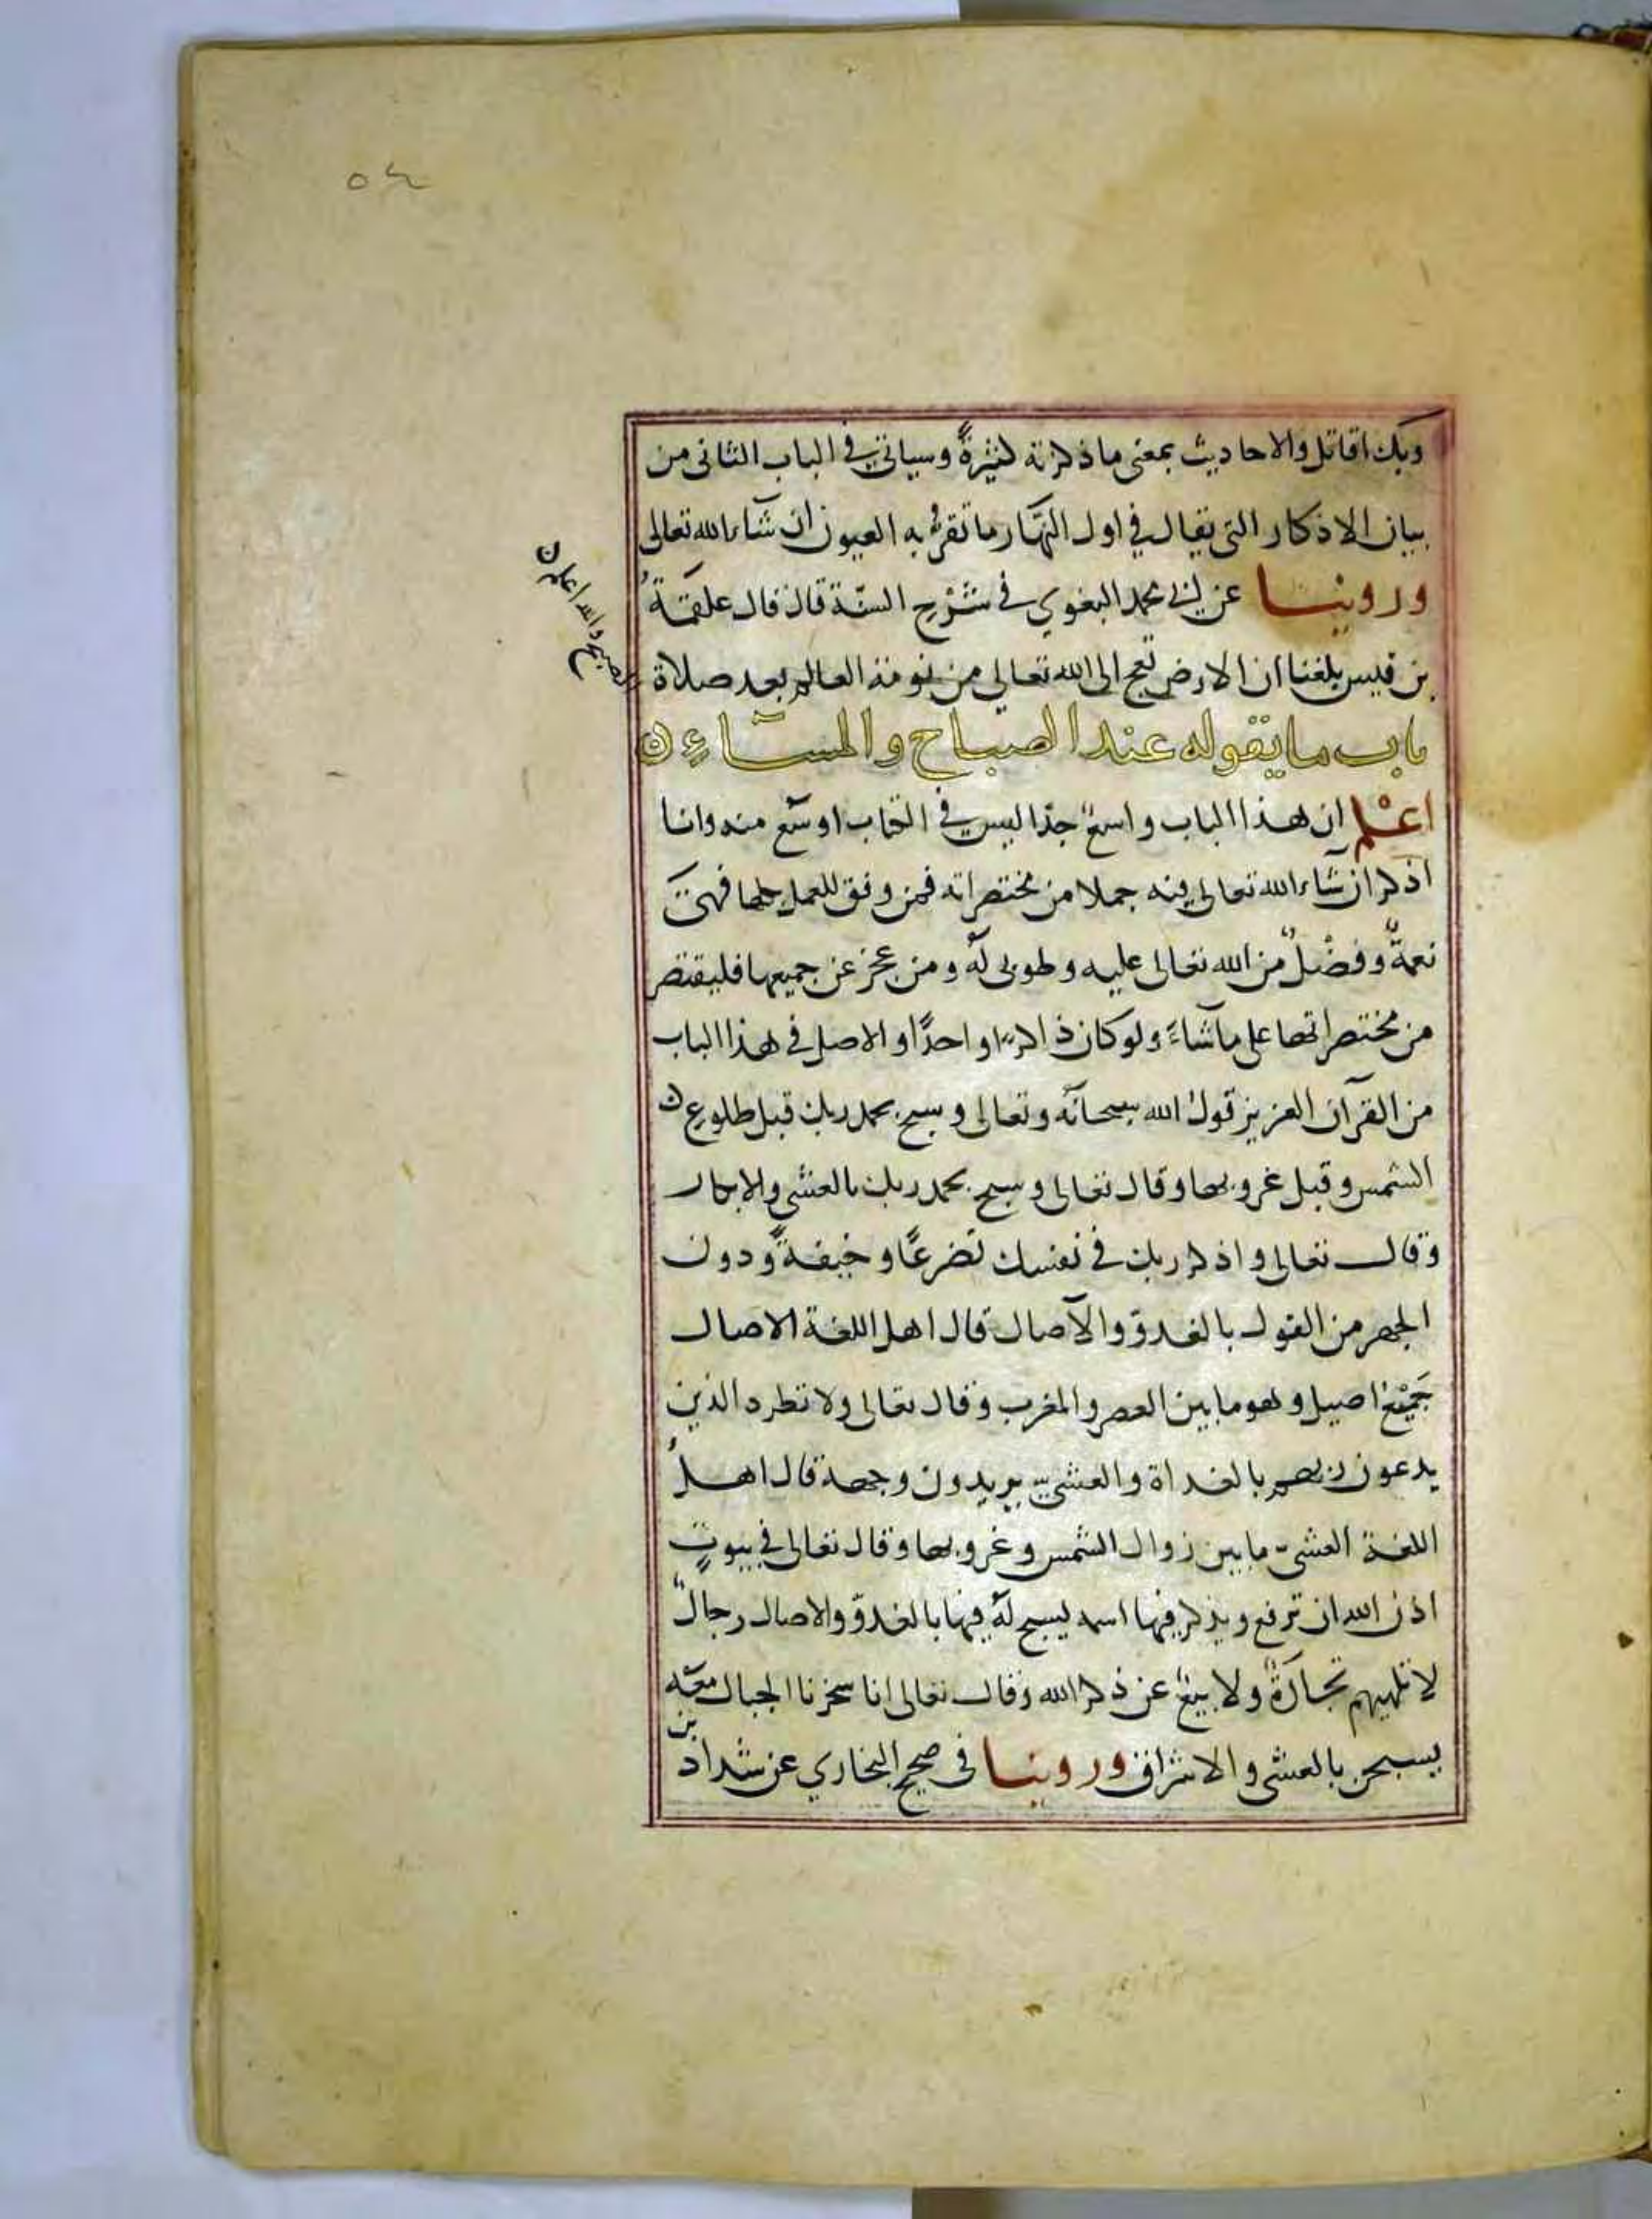 ٥٤
وبك اقاتل والاحاديث بمعنى ما ذكرته كثيرةً وسياتي في الباب الثاني من
بيان الاذكار التي يقال في اول النّهار ما تقرُّ به العيون ان شآء الله تعالى
وروينا عن ابي محمد البغوي في شرْح السنّة قال قال علقمَةُ
بن قيس بلغنا ان الارض تعج الى الله تعالى من نومة العالم بعد صلاة
الصبح والله اعلم ن
باب ما يقوله عند الصباح والمسآءِ ن
اعْلم ان هذا الباب واسعٌ جدّا ليس في الكتاب اوسَع منه وانا
اذكر ان شآء الله تعالى فيه جملا من مختصراته فمن وفق للعمل بكلها فهيَ
نعمةٌ وفضْلٌ من الله تعالى عليه وطوبى لهُ ومن عجز عن جميعها فليقتصر
من مختصراتها على ما شآءَ ولو كان ذاكرًا واحدًا والاصل في هذا الباب
من القرآن العزيز قولُ الله سبحانَه وتعالى وسبح بحمد ربك قبل طلوعِ ن
الشمس وقبل غروبها وقال تعالى وسبح بحمد ربك بالعشي والابكار
وقال تعالى واذكر ربك في نفسك تضرعًا وخيفةً ودون
الجهر من القول بالغدوّ والآصال قال اهل اللغة الاصال
جَمْعُ اصيل وهو ما بين العصر والمغرب وقال تعالى ولا تطرد الذين
يدعون ربهم بالغداة والعشيّ يريدون وجهه قال اهلُ
اللغة العشيّ ما بين زوال الشمس وغروبها وقال تعالى في بيوتٍ
اذن الله ان ترفع ويذكر فيها اسمه يسبح لهُ فيها بالغدوّ والاصال رجالٌ
لا تلهيهم تجارَةٌ ولا بيعٌ عن ذكر الله وقال تعالى انا سخرنا الجبال معَه
يسبحن بالعشي والاشراق وروينا في صحيح البخاري عن شداد بن